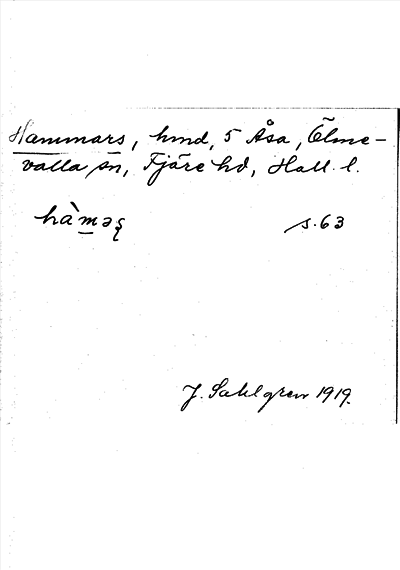 Hammars, hmd, 5 Åsa, Ölme-
valla sn, Fjäre hd, Hall. l.
hàməʂ s. 63
J. Sahlgren 1919.